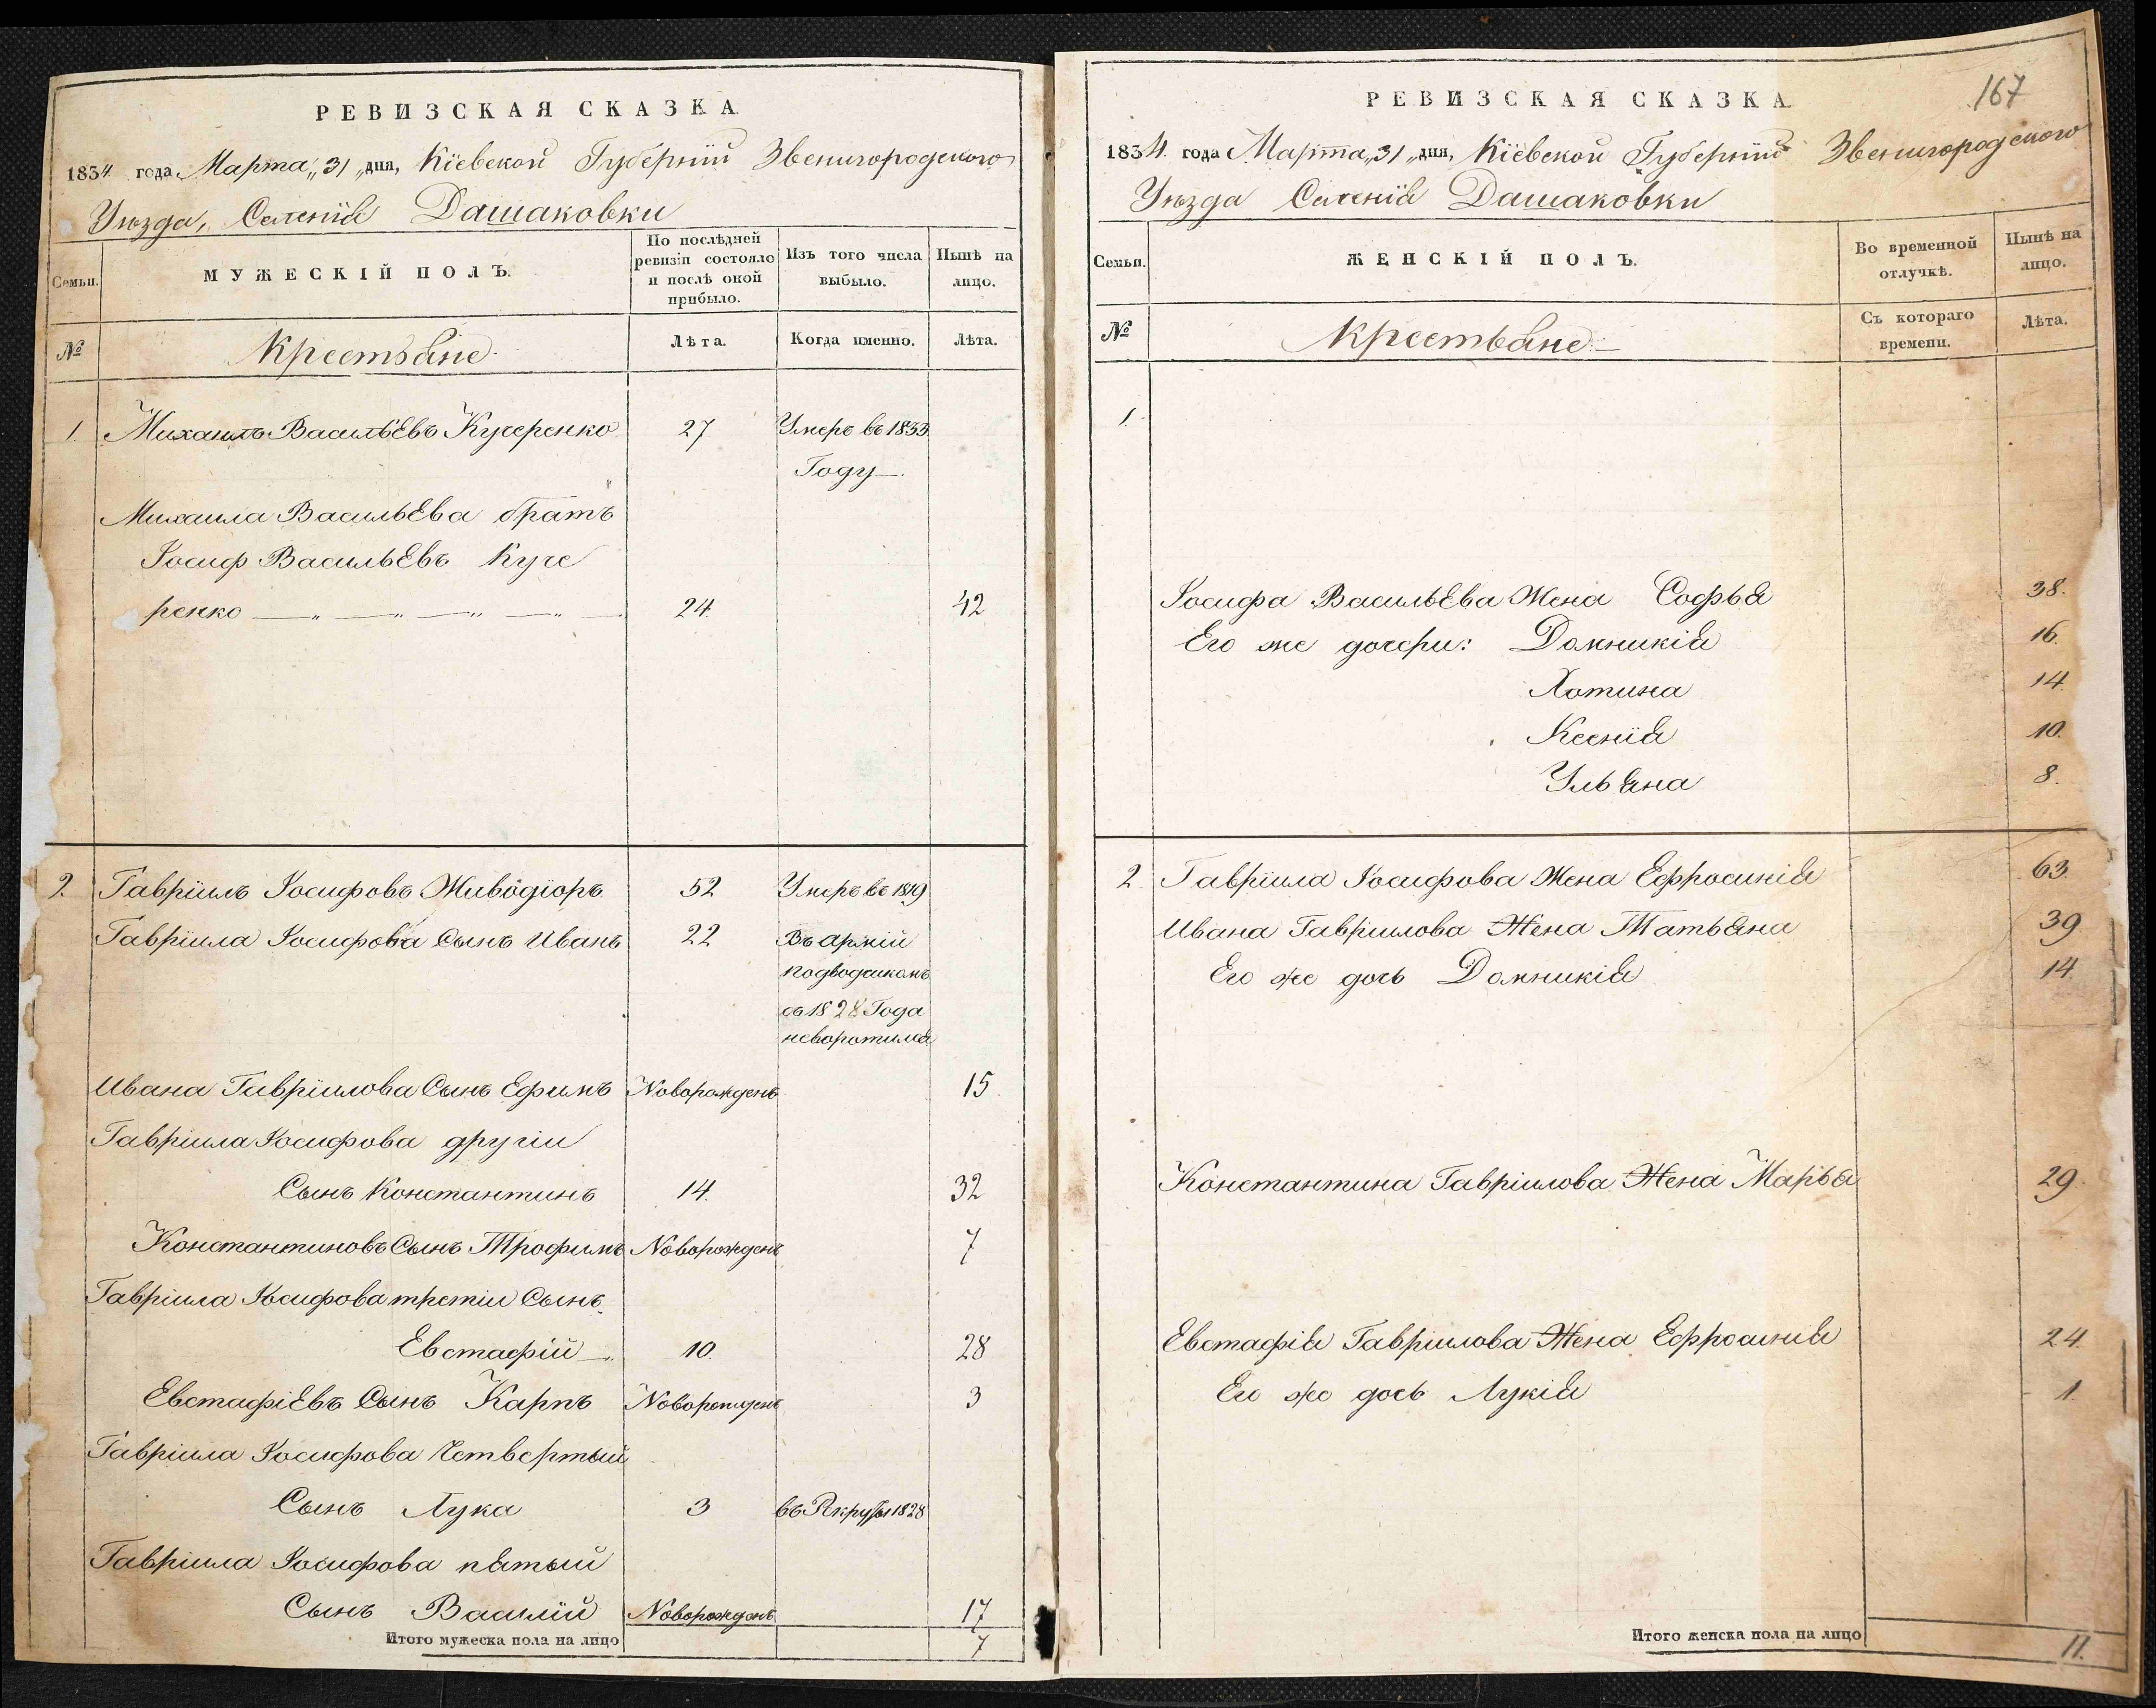 РЕВИЗСКАЯ СКАЗКА
1834 года Марта „31„ дня, Кіевской Губерніи Звенигородского
Уѣзда, Селенія Дашаковки
Семьи.
МУЖЕСКІЙ ПОЛЪ.
По послѣдней ревизіи состояло и послѣ оной прибыло.
Изъ того числа выбыло.
Нынѣ на лицо.
№
Крестьяне
Лѣта.
Когда именно.
Лѣта.
1. Михаилъ Васильевъ Кучеренко 27 Умеръ въ 1833
Году
Михаила Васильева братъ
Іосиф Васильевъ Куче
ренко 24. 42
2. Гавріилъ Іосифовъ Живодіоръ 52 Умеръ въ 1819
Гавріила Іосифова Сынъ Иванъ 22 Въ арміи
подводчикомъ
съ 1828 Года
неворотился
Ивана Гавріилова Сынъ Ефимъ Новорожденъ 15
Гавріила Іосифова другіи
Сынъ Константинъ 14. 32
Константиновъ Сынъ Трофимъ Новорожденъ 7
Гавріила Іосифова третіи Сынъ
Евстафій 10. 28
Евстафіевъ Сынъ Карпъ Новорожденъ 3
Гавріила Іосифова Четвертый
Сынъ Лука 3 въ Рекруты 1828
Гавріила Іосифова пятый
Сынъ Василій Новорожденъ 17
Итого мужеска пола на лицо 7
167
РЕВИЗСКАЯ СКАЗКА
1834. года Марта „31„ дня, Кіевской Губерніи Звенигородского
Уѣзда Селенія Дашаковки
Семьи.
ЖЕНСКІЙ ПОЛЪ.
Во временной отлучкѣ.
Нынѣ на лицо.
№
Крестьяне
Съ котораго времени.
Лѣта.
1.
Іосифа Васильева Жена Софья 38.
Его же дочери: Домникія 16.
Хотина 14.
Ксенія 10.
Ульяна 8.
2. Гавріила Іосифова Жена Ефросинія 63.
Ивана Гавріилова Жена Татьяна 39
Его же дочь Домникія 14.
Константина Гавріилова Жена Марья 29.
Евстафія Гавріилова Жена Ефросинія 24.
Его же дочь Лукія 1.
Итого женска пола на лицо 11.